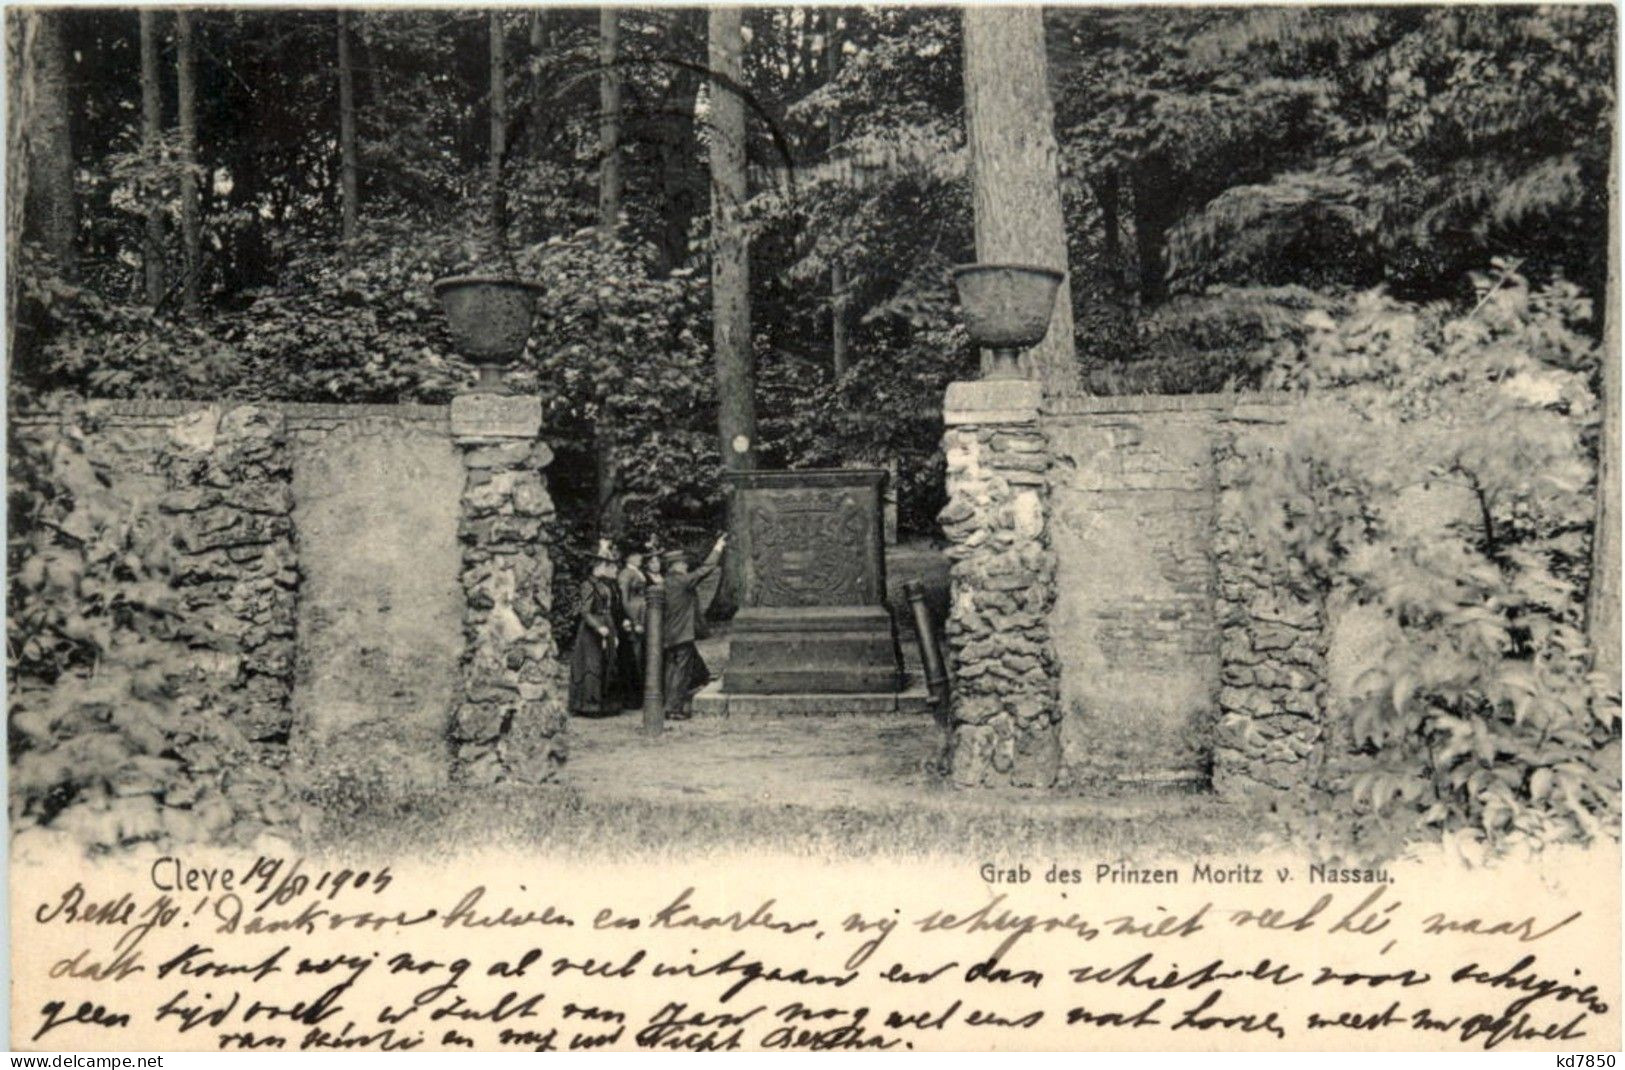 Cleve 19/8 1904
Grab des Prinzen Moritz v. Nassau.
Beste Jo! Dank voor brieven en kaarten, wij schrijven niet veel hé, maar
dat komt wij nog al veel uitgaan en dan schiet er voor schrijven
geen tijd over, u zult van Jan nog wel eens wat hooren, meest
van en Bertha.
www.delcampe.net
kd7850